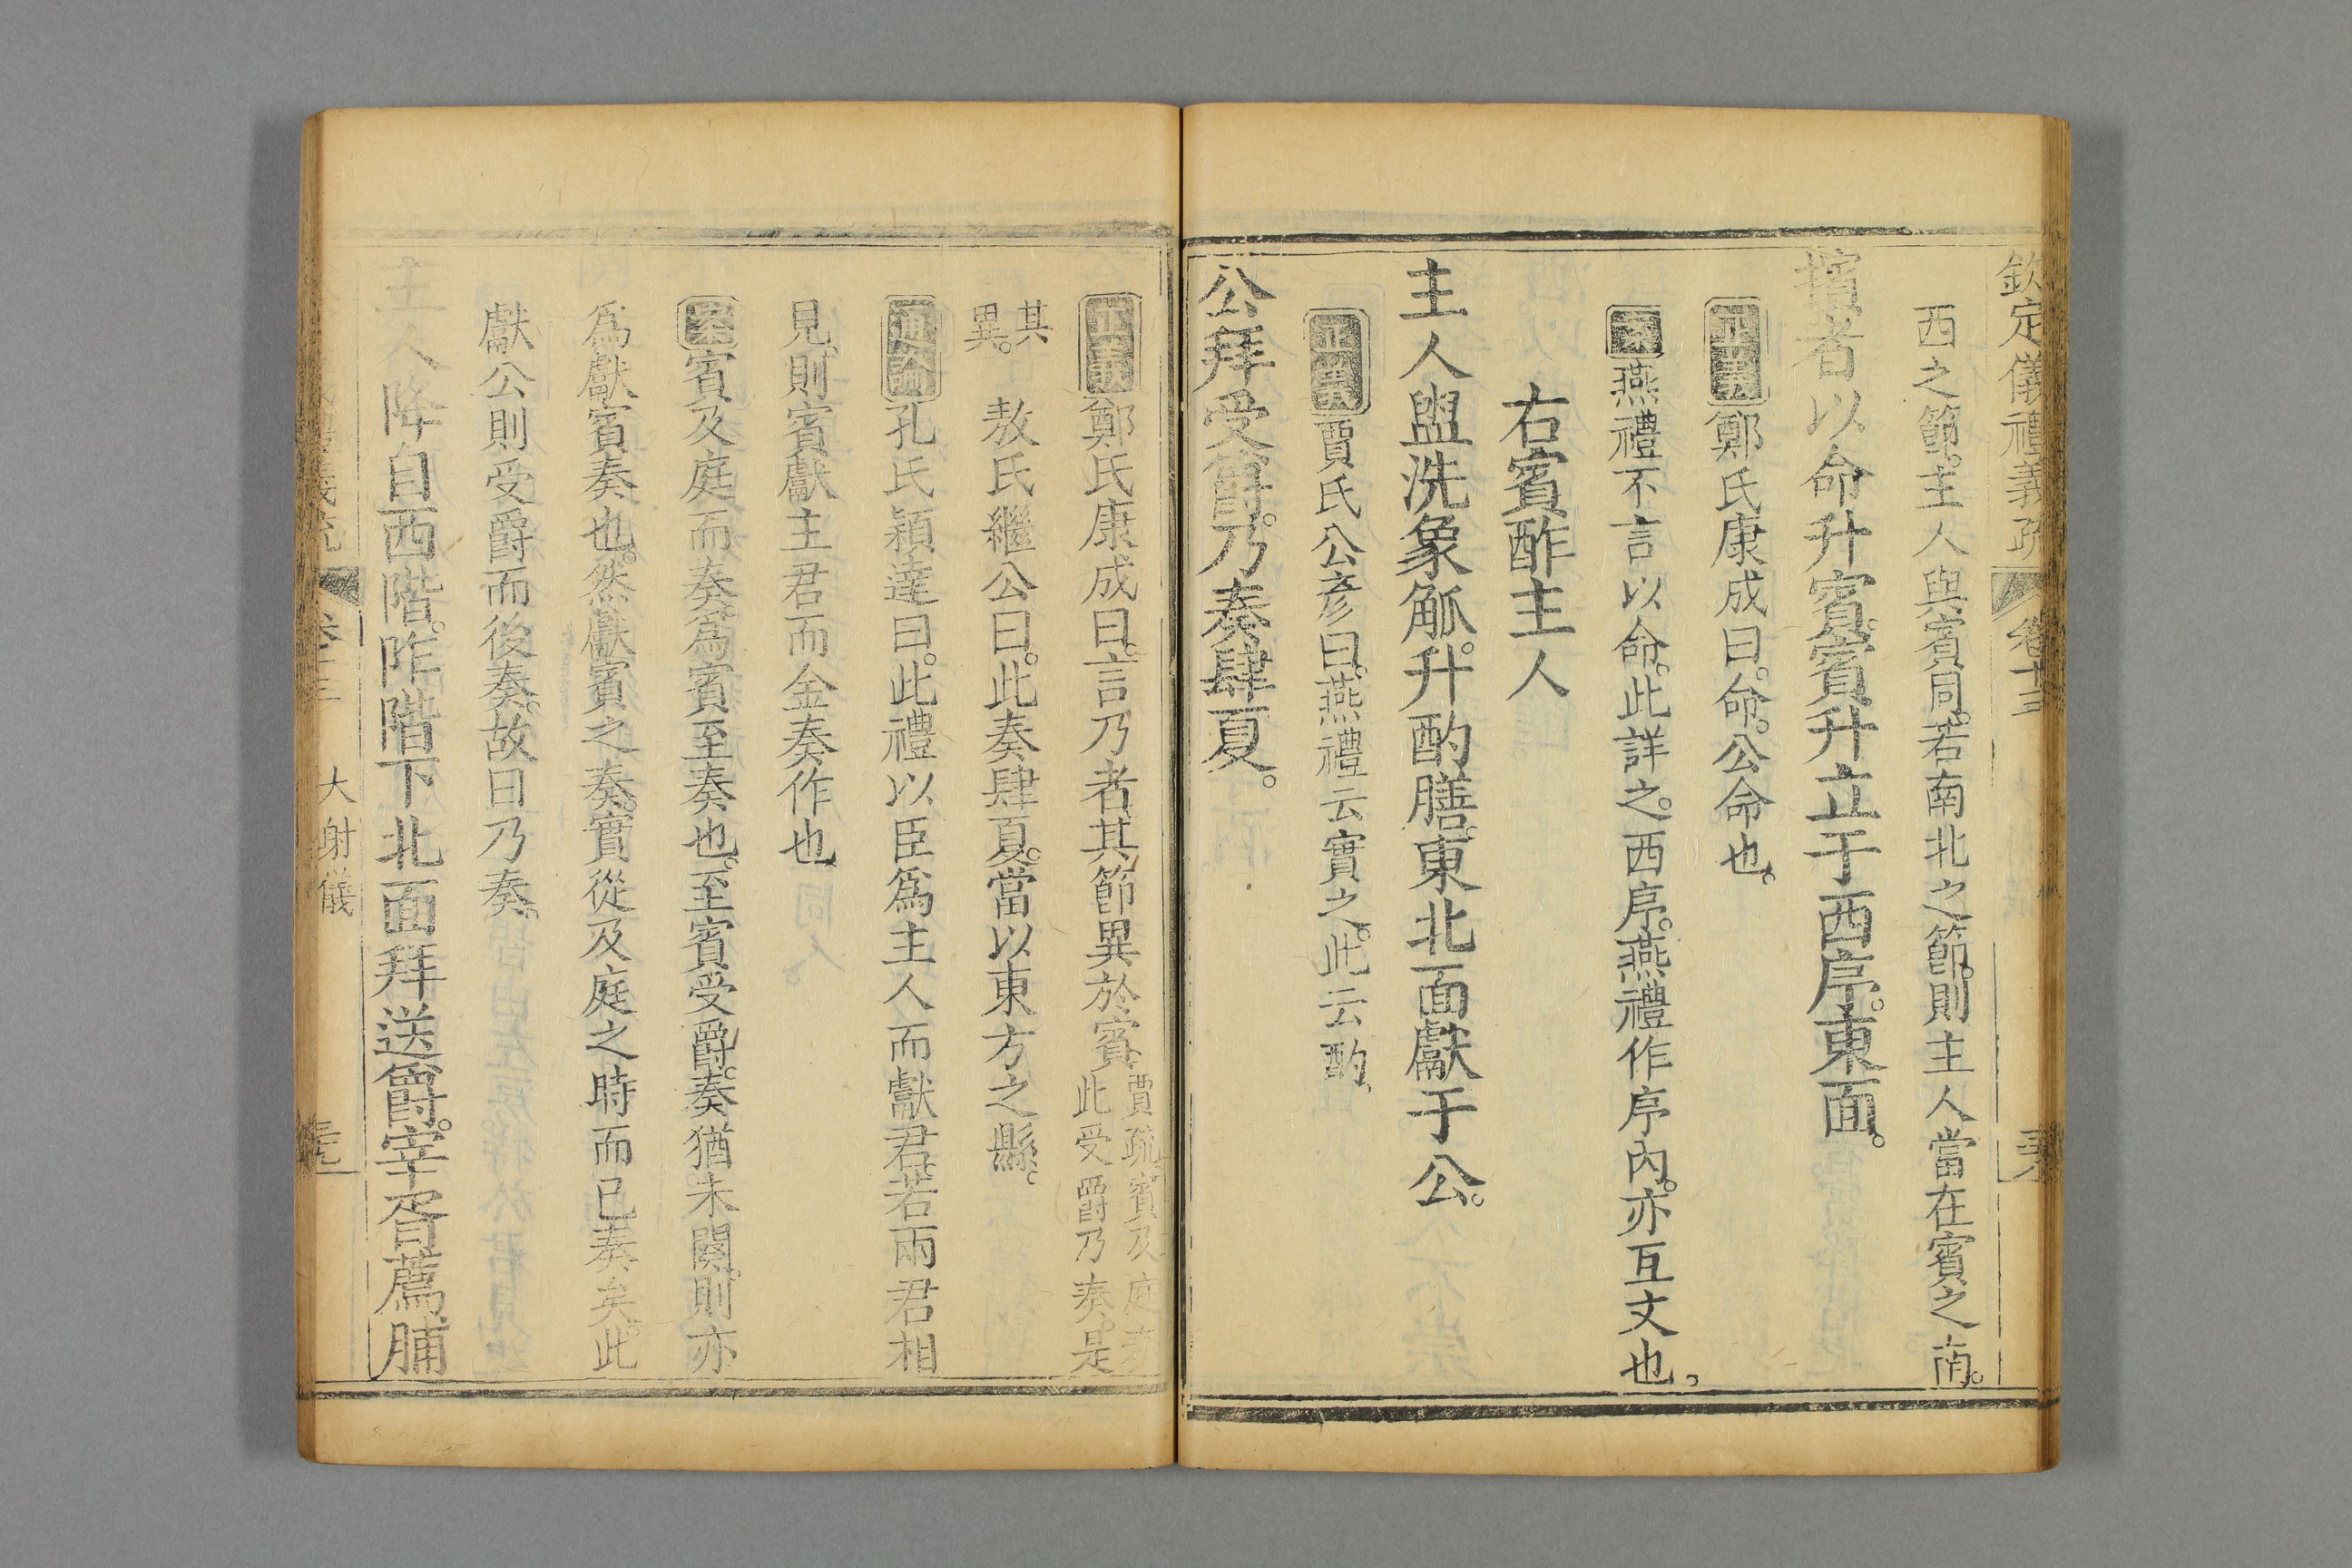 欽定儀禮義疏 卷十三
西之節。主人與賓同。若南北之節。則主人當在賓之南。
擯者以命升賓。賓升立于西序。東面。
正義鄭氏康成曰。命。公命也。
案燕禮不言以命。此詳之。西序。燕禮作序內。亦互文也。
右賓酢主人
主人盥洗象觚。升酌膳。東北面獻于公。
正義賈氏公彥曰。燕禮云實之。此云酌、
公拜受爵。乃奏肆夏。
正義鄭氏康成曰。言乃者其節異於賓賈疏。賓及庭奏
此受爵乃奏。是
其
異。 敖氏繼公曰。此奏肆夏。當以東方之縣。
通論孔氏穎達曰。此禮以臣爲主人而獻君。若兩君相
見。則賓獻主君而金奏作也
案賓及庭而奏。爲賓至奏也。至賓受爵。奏猶未闋。則亦
爲獻賓奏也。然獻賓之奏。實從及庭之時而已奏矣。此
獻公則受爵而後奏。故曰乃奏。
主人降自西階。阼階下北面拜送爵。宰胥薦脯
大射儀